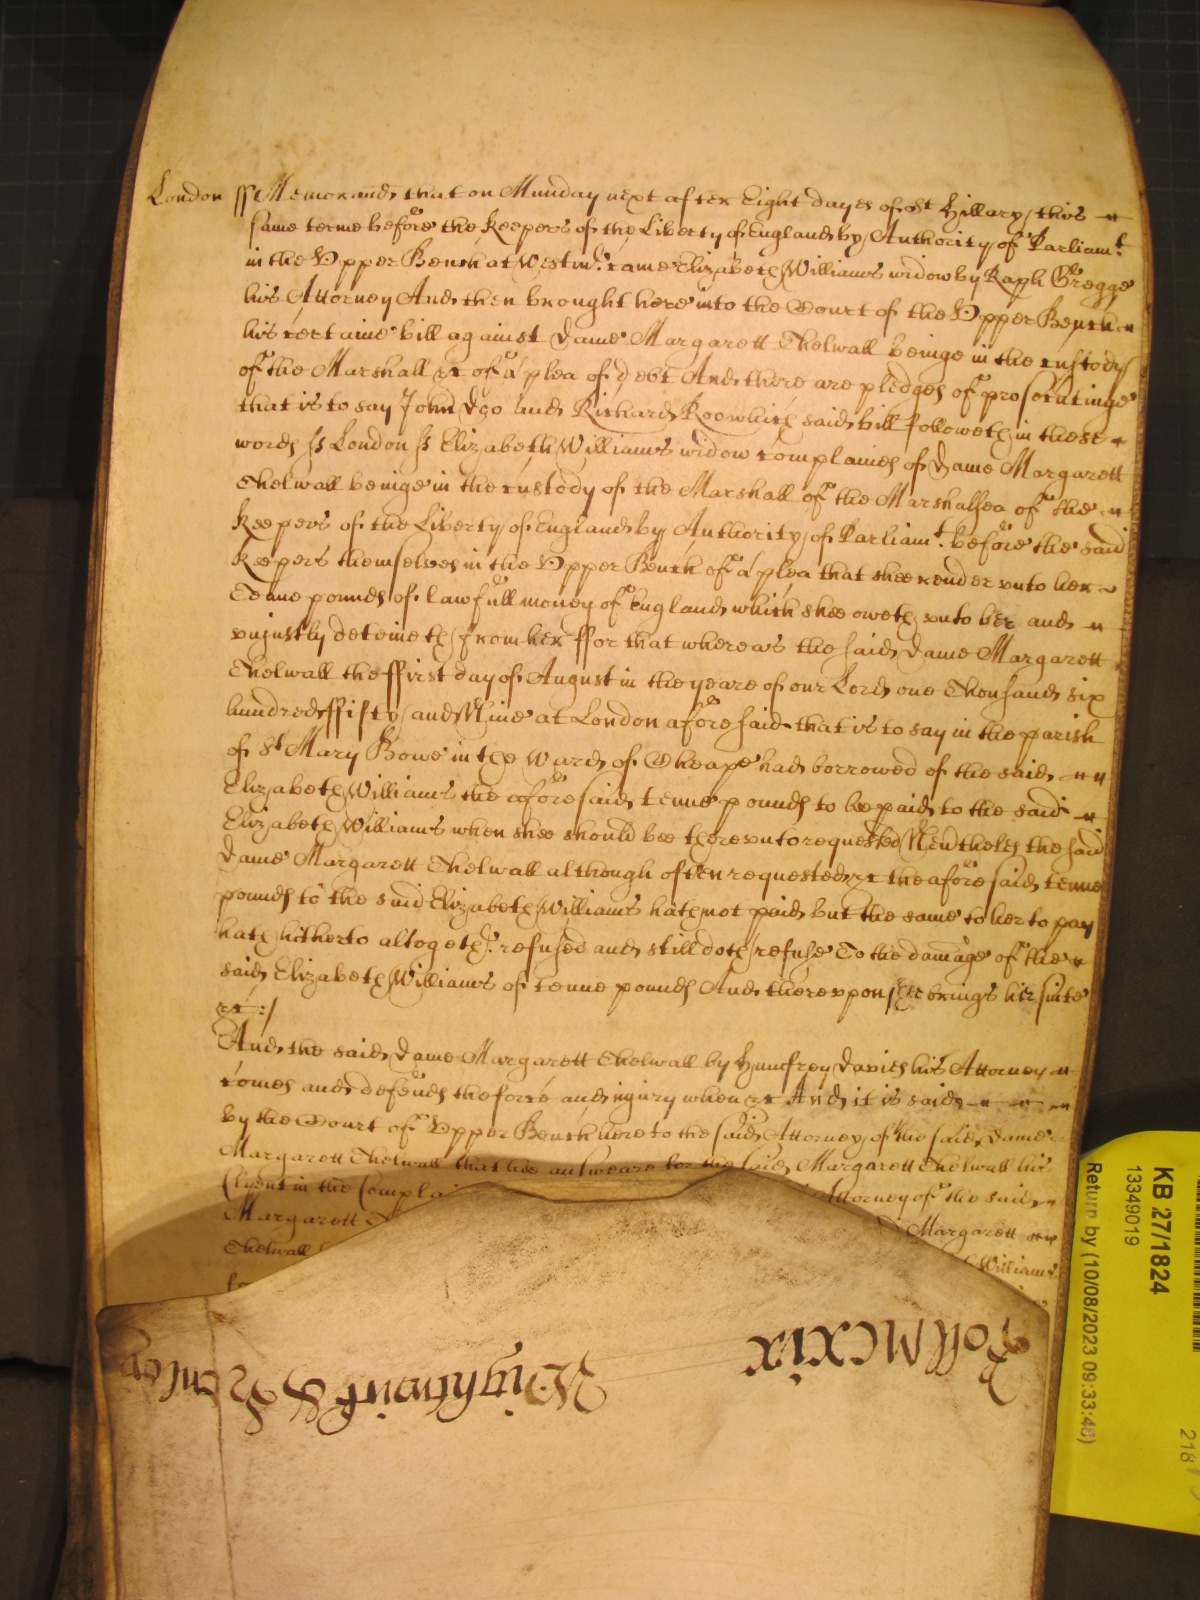 London ss Memorand that on Munday next after Eight dayes of St Hillary this
same terme before the Keepers of the Liberty of England by Authority of Parliamt
in the Upper Bench at Westmr came Elizabeth Williams widow by Raph Gregge
his Attorney And then brought here into the Court of the Upper Bench
his certaine bill against Dame Margarett Thelwall beinge in the custody
of the Marshall &c of a plea of debt And there are pledges of prosecutinge
that is to say John Doo and Richard Roo which said bill followeth in these
words ss London ss Elizabeth Williams widow complaines of Dame Margarett
Thelwall beinge in the custody of the Marshall of the Marshalsea of the
Keepers of the Liberty of England by Authority of Parliamt before the said
Keepers themselves in the Upper Bench of a plea that shee render unto her
Tenne pounds of lawfull money of England which shee oweth unto her and
unjustly deteineth from her ffor that whereas the said Dame Margarett
Thelwall the ffirst day of August in the yeare of our Lord one Thousand six
hundred ffifty and Nine at London aforesaid that is to say in the parish
of St Mary Bowe in the Ward of Cheape had borrowed of the said
Elizabeth Williams the aforesaid tenne pounds to be paid to the said
Elizabeth Williams when shee should bee thereunto requested Neverthelesse the said
Dame Margarett Thelwall although often requested &c the aforesaid tenne
pounds to the said Elizabeth Williams hath not paid but the same to her to pay
hath hitherto altogether refused and still doth refuse To the damage of the
said Elizabeth Williams of tenne pounds And thereupon shee brings her suite
&c :/
And the said Dame Margarett Thelwall by Humfrey Davies his Attorney
comes and defends the force and injury when &c And it is said
by the Court of Upper Bench here to the said Attorney of the said Dame
Margarett Thelwall that hee answeare for the said Margarett Thelwall his
Clyent in the Complai Attorney of the said
Margarett Margarett
Thelwall Williams
Roll MCxix
Wightwick & Henley
KB 27/1824
13349019
Return by (10/08/2023 09:33:48)
218